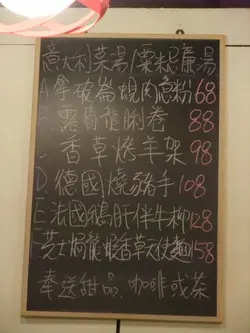 意大利菜湯/粟米忌廉湯
A.拿破崙蜆肉意粉68
露筍龍脷卷 88
香草烤羊架 98
D.德國燒豬手108
E.法國鵝肝伴牛柳128
F.芝士焗龍蝦香草天使麵158
奉送甜品.咖啡或茶